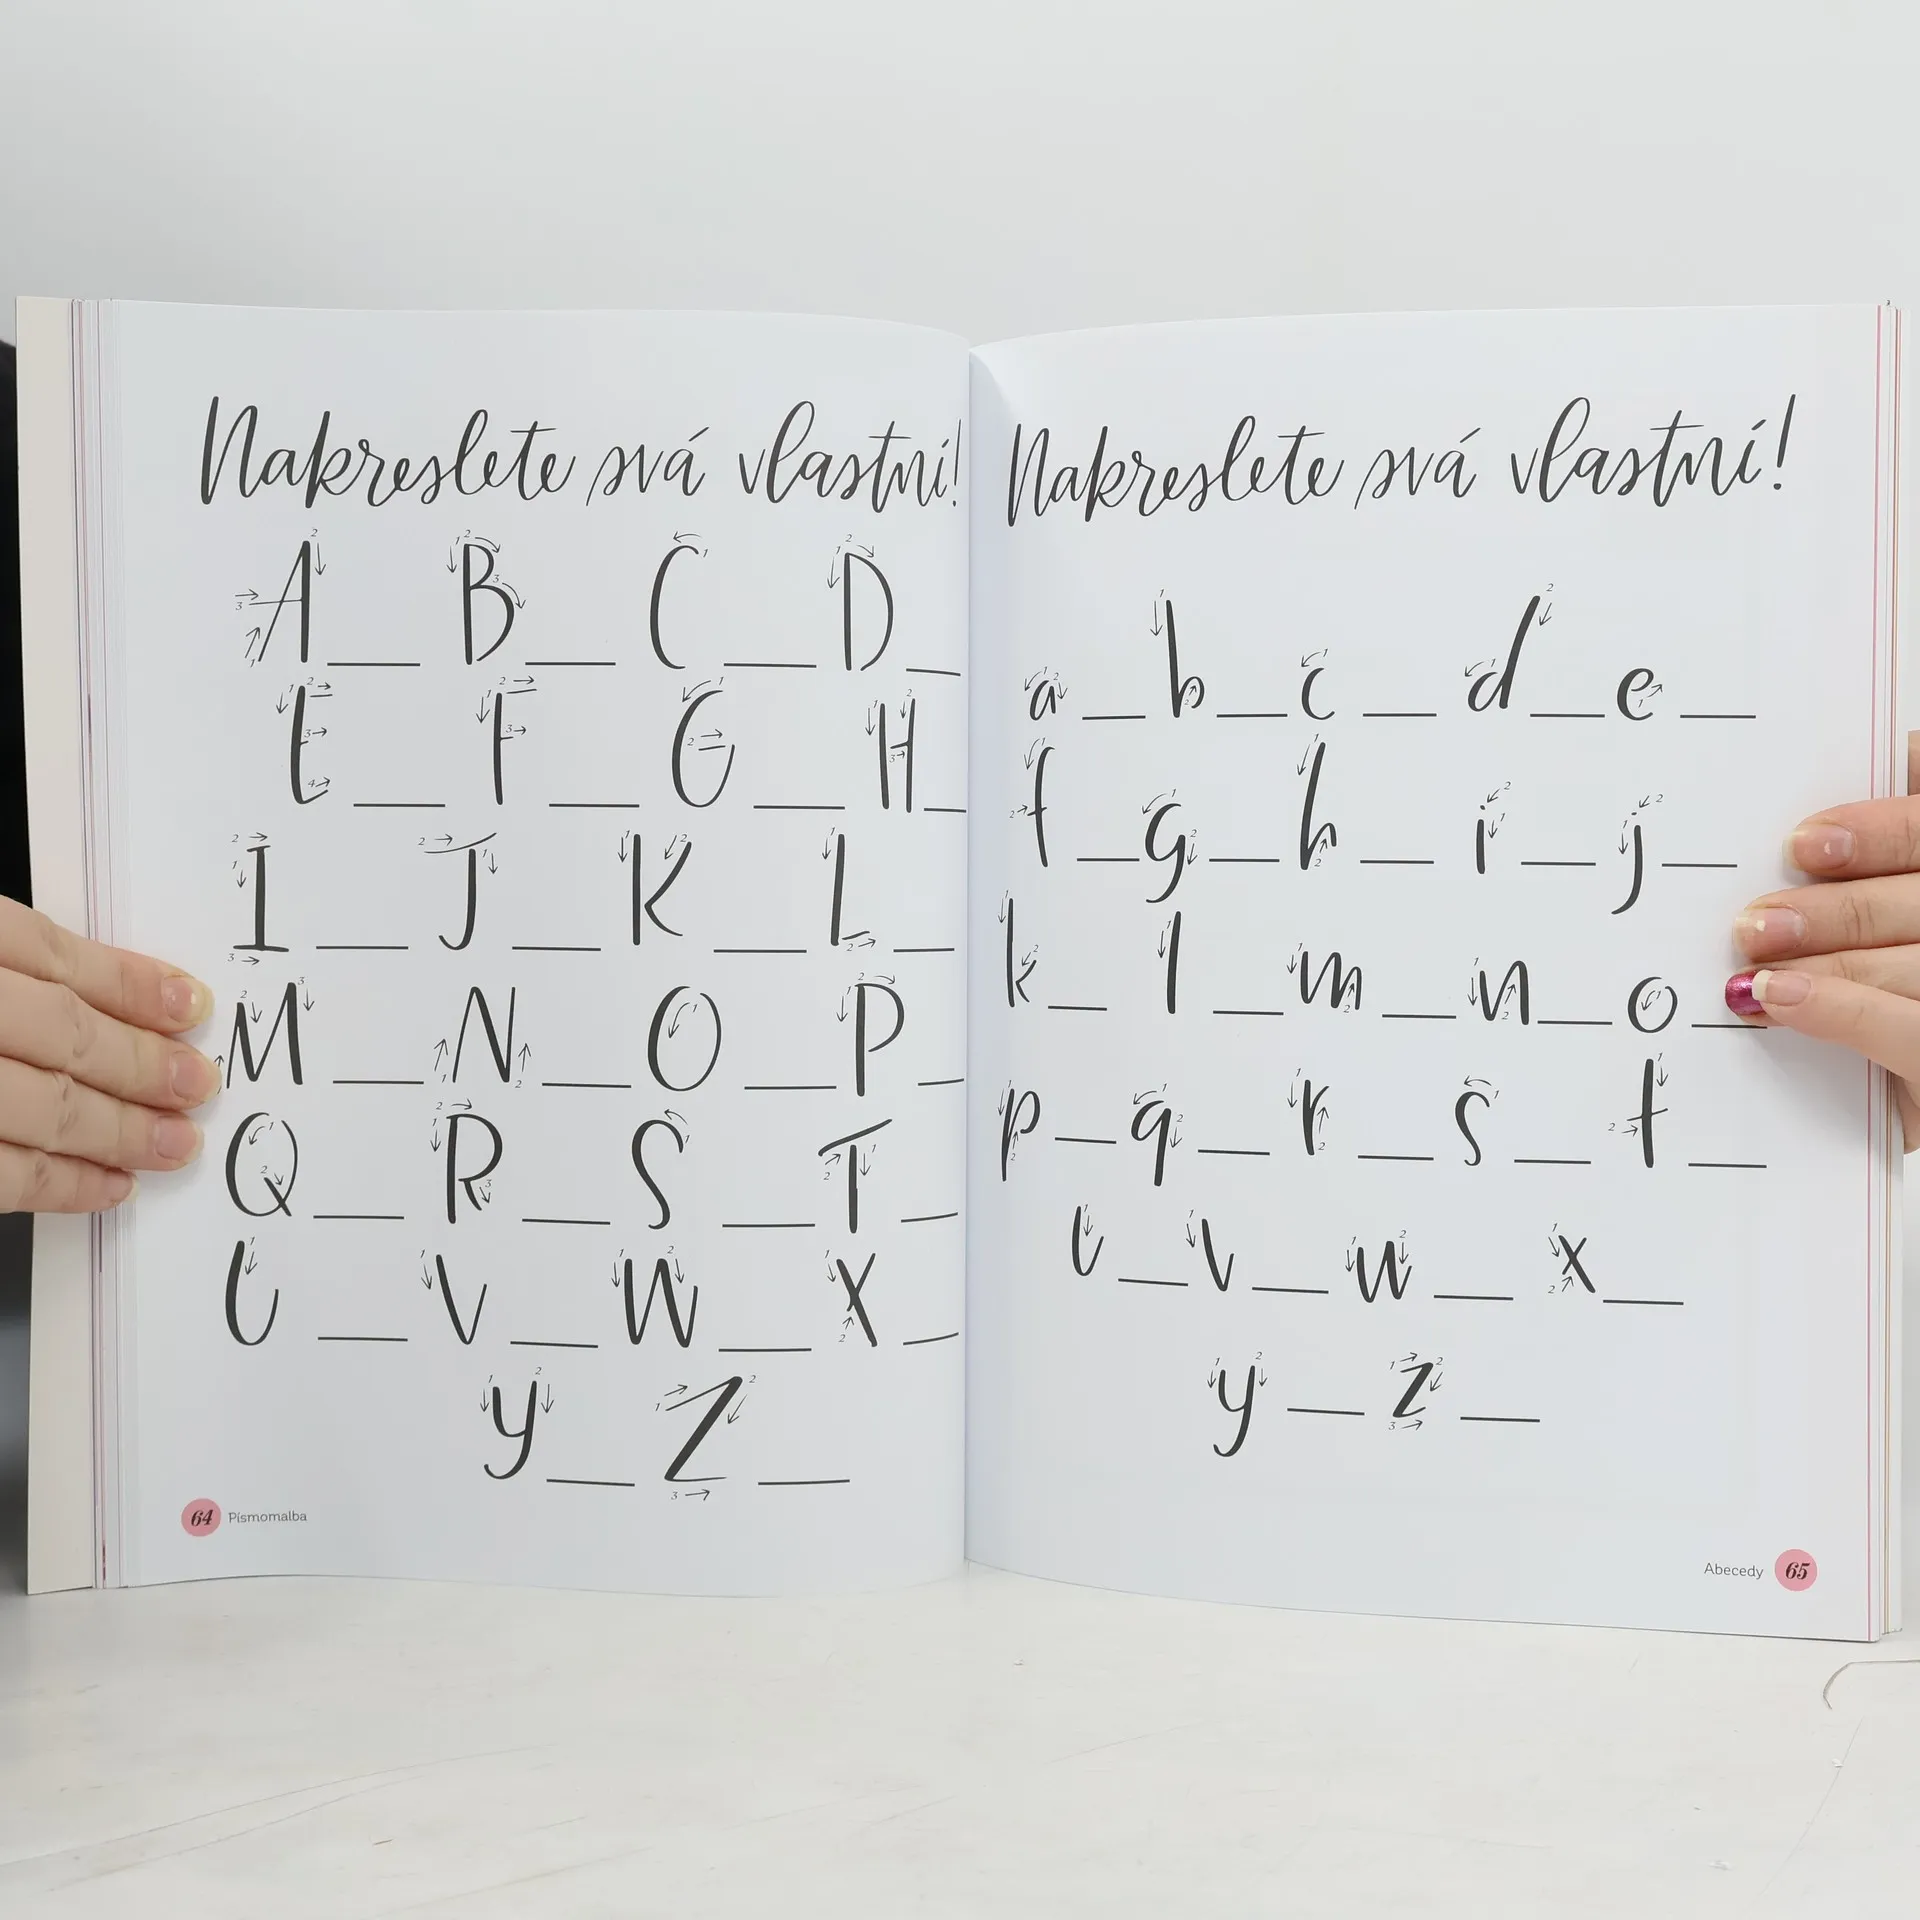 Nakreslete svá vlastní!
A B C D
E F G H
I J K L
M N O P
Q R S T
U V W X
Y Z
64 Písmomalba
Nakreslete svá vlastní!
a b c d e
f g h i j
k l m n o
p q r s t
u v w x
y z
Abecedy 65